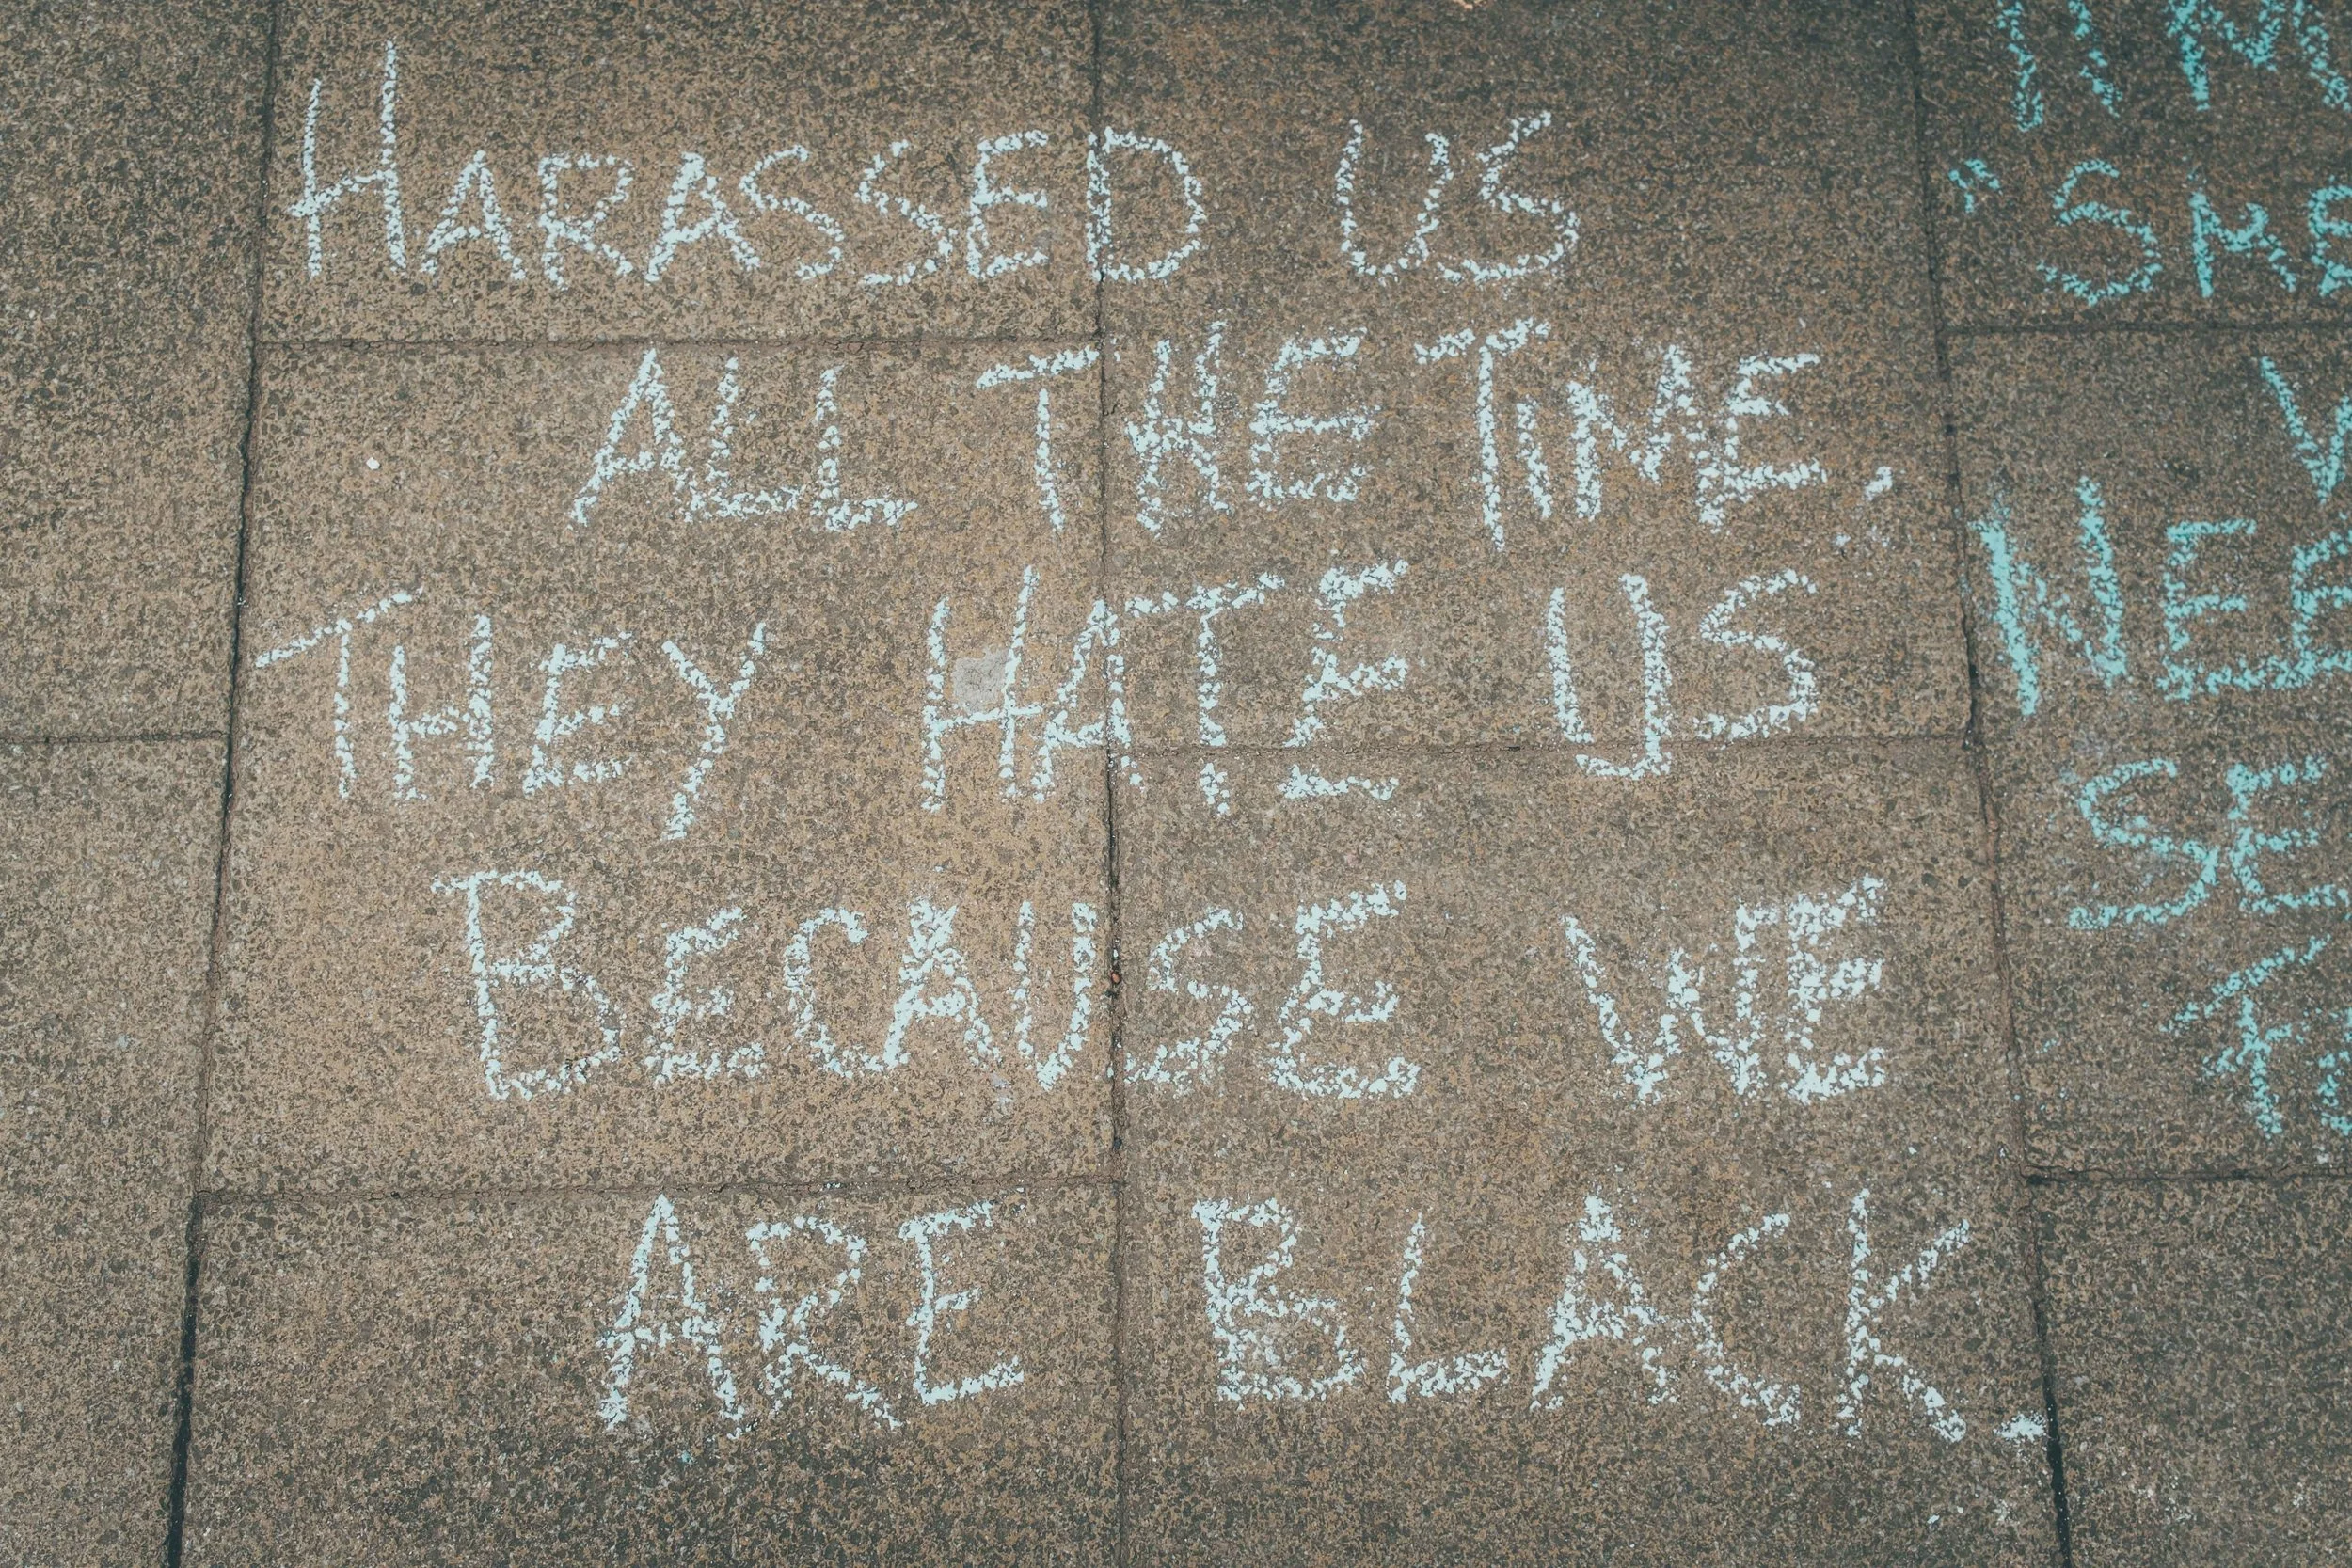 HARASSED US
ALL THE TIME.
THEY HATE US
BECAUSE WE
ARE BLACK.